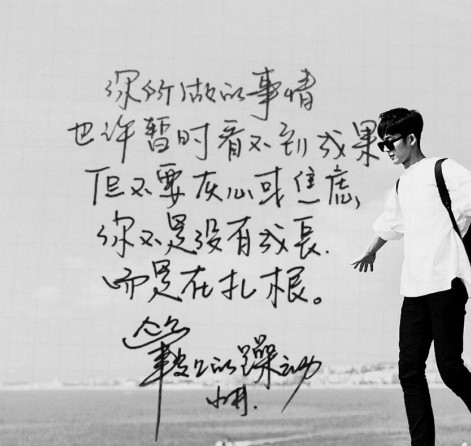 你所做的事情
也许暂时看不到成果
但不要灰心或焦虑
你不是没有成長.
而是在扎根。
笔尖上的躁动